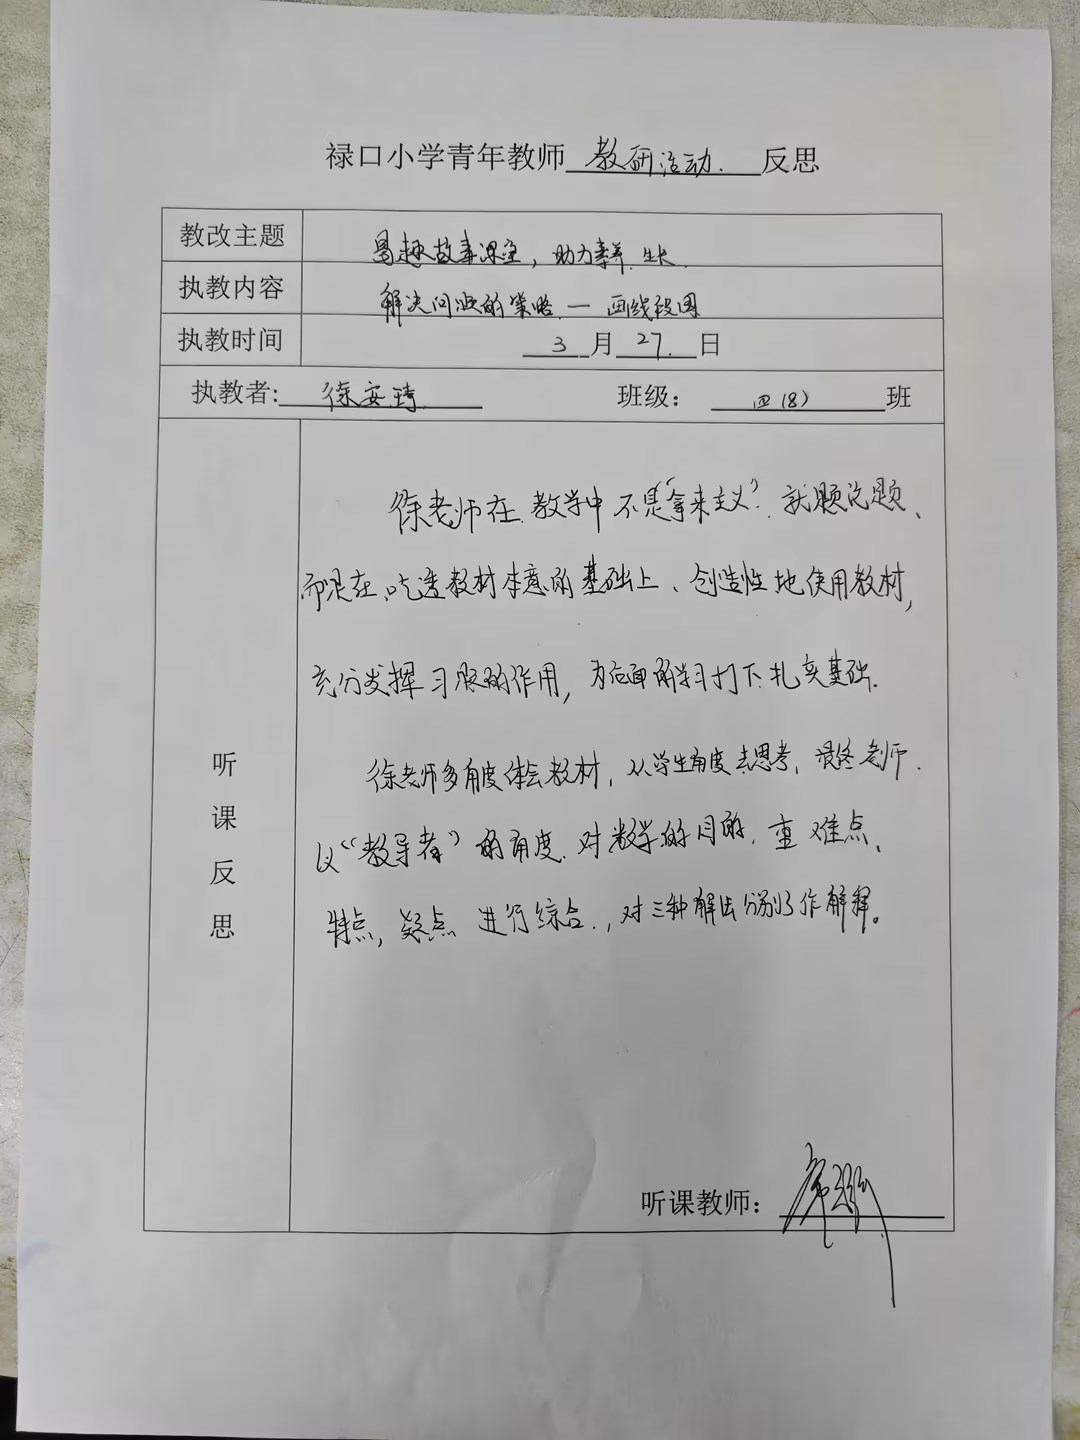 禄口小学青年教师 教研活动. 反思
教改主题 趣故事课堂，助力素养.生长.
执教内容 解决问题的策略.— 画线段图
执教时间 3 月 27. 日
执教者: 徐安琦 班级： 四(8) 班
徐老师在.教学中不是“拿来主义”.就题说题、
而是在、吃透教材本意的基础上、创造性地使用教材，
充分发挥习题的作用，为后面的学习打下.扎实基础.
徐老师多角度体会教材，从学生角度去思考，最终老师.
以“教导者”的角度.对教学的目的，重难点、
特点，疑点 进行综合.，对三种解法分别作解释。
听课反思
听课教师：